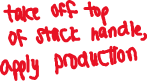 take off top
of stack handle,
apply production